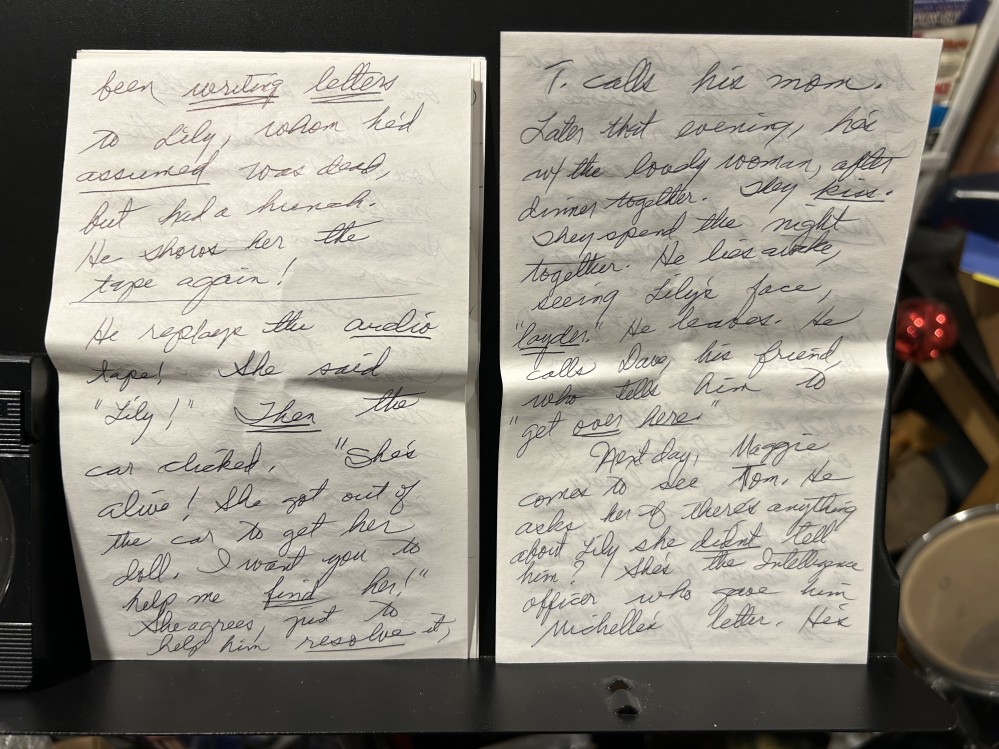 been writing letters
to Lily, whom he'd
assumed was dead,
but had a hunch.
He shows her the
tape again!
He replays the audio
tape! She said
"Lily!" Then the
car clicked. "She's
alive! She got out of
the car to get her
doll. I want you to
help me find her!"
She agrees, just to
help him resolve it,
T. calls his mom.
Later that evening, he's
w/ the loody woman, after
dinner together. They kiss.
They spend the night
together. He lies awake,
seeing Lily's face,
"layder." He leaves. He
calls Dave, his friend,
who tells him to
"get over here."
Next day, Maggie
comes to see Tom. He
asks her if there's anything
about Lily she didn't tell
him? She's the Intelligence
officer who gave him
Michelle's letter. He's